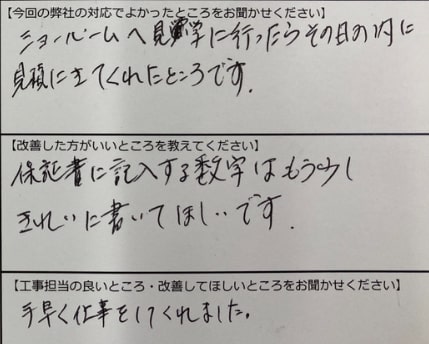 【今回の弊社の対応でよかったところをお聞かせください】
ショールームへ見学に行ったらその日の内に
見積に来てくれたところです.
【改善した方がいいところを教えてください】
保証書に記入する数字はもう少し
きれいに書いてほしいです.
【工事担当の良いところ・改善してほしいところをお聞かせください】
手早く仕事をしてくれました。